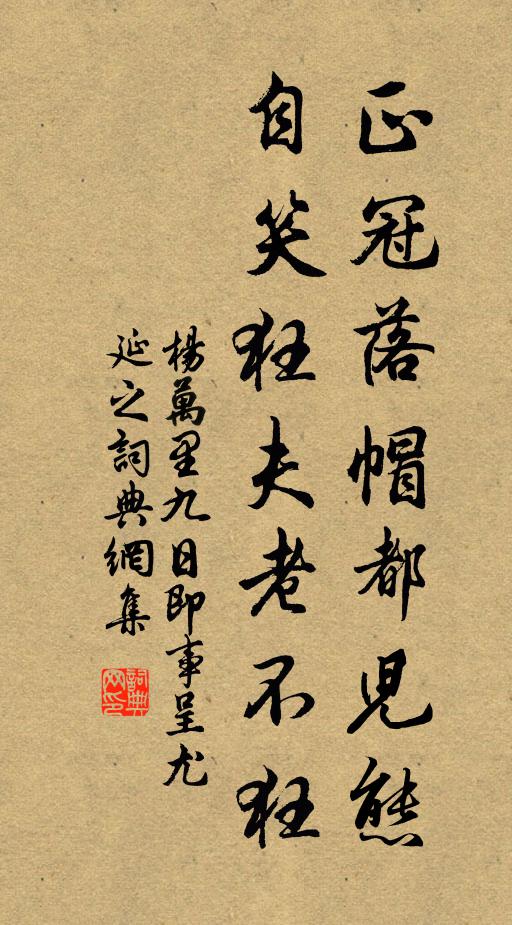 正冠落帽都兒態
自笑狂夫老不狂
楊萬里九日即事呈尤
延之詞典網集
詞典網印